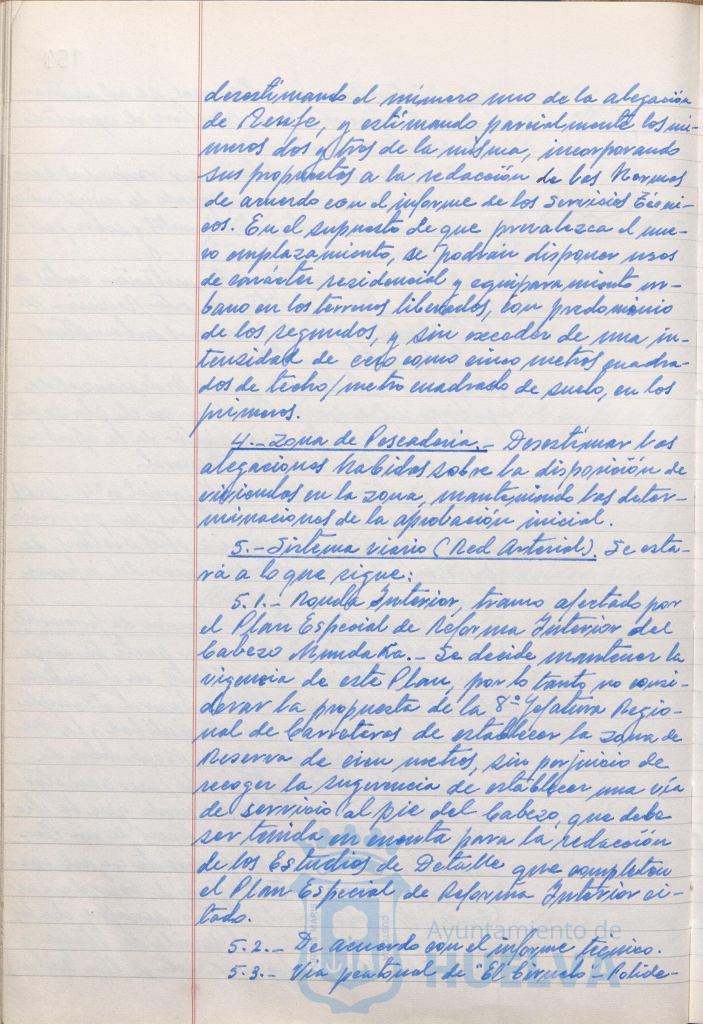 desestimando el número uno de la alegación
de Renfe, y estimando parcialmente los nú-
meros dos y tres de la misma, incorporando
sus propuestas a la redacción de las Normas
de acuerdo con el informe de los Servicios Técni-
cos. En el supuesto de que prevalezca el nue-
vo emplazamiento, se podrán disponer usos
de carácter residencial y equipamiento ur-
bano en los terrenos liberados, con predominio
de los segundos, y sin exceder de una in-
tensidad de cero como cinco metros cuadra-
dos de techo/metro cuadrado de suelo, en los
primeros.
4.- Zona de Pescadería.- Desestimar las
alegaciones habidas sobre la disposición de
viviendas en la zona, manteniendo las deter-
minaciones de la aprobación inicial.
5.- Sistema viario (Red Arterial). Se esta-
rá a lo que sigue:
5.1.- Ronda Interior, tramo afectado por
el Plan Especial de Reforma Interior del
Cabezo Mundaka.- Se decide mantener la
vigencia de este Plan, por lo tanto, no consi-
derar la propuesta de la 8ª Jefatura Regio-
nal de Carreteras de establecer la zona de
Reserva de cien metros, sin perjuicio de
recoger la sugerencia de establecer una vía
de servicio al pie del Cabezo, que debe
ser tenida en cuenta para la redacción
de los Estudios de Detalle que completen
el Plan Especial de Reforma Interior ci-
tado.
5.2.- De acuerdo con el informe técnico.
5.3.- Vía peatonal de "El Ciruelo - Polide-
Ayuntamiento de
HUELVA